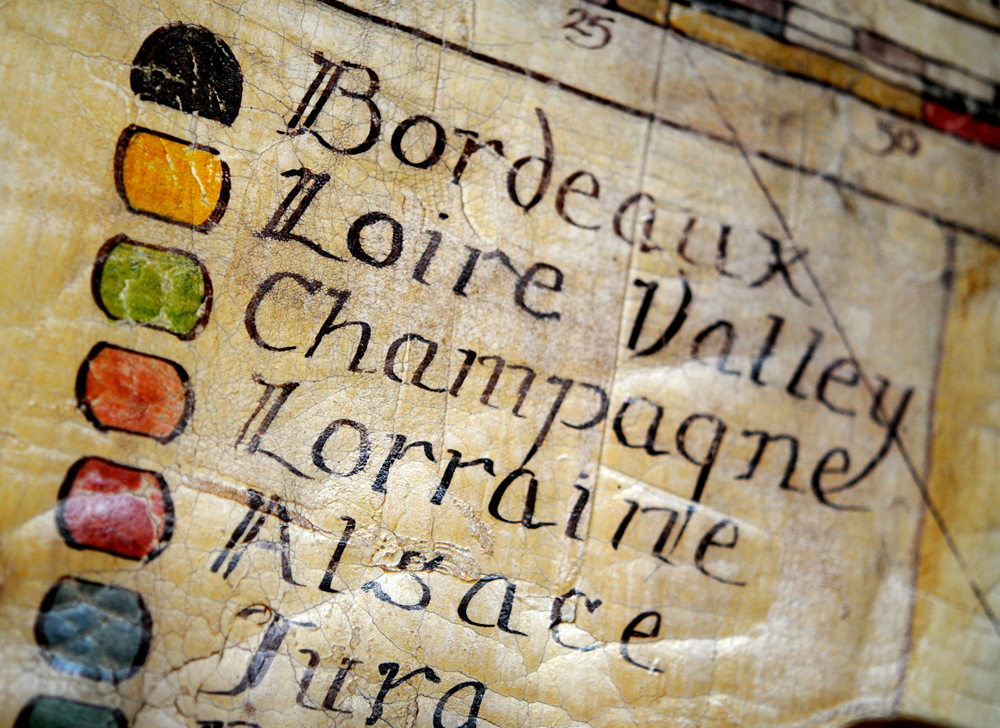 25
50
Bordeaux
Loire Valley
Champagne
Lorraine
Alsace
Jura